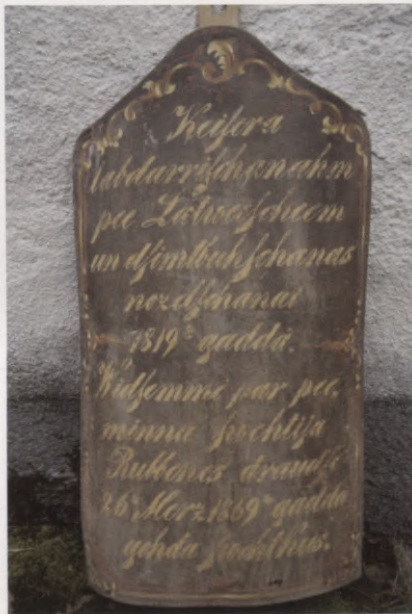 Keisera
labdarrischanahm
pee Latweescheem
un dsimtbuhschanas
nozelschanai
1819tā gaddā.
Widsemmē par pee,
minnu swehtija
Rubbenes draudse
26tā Merz 1869tā gaddā
gohda swehtkus.